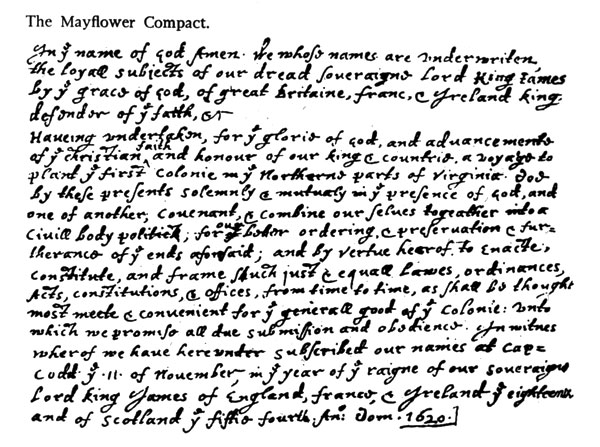 The Mayflower Compact.
In yͤ name of god Amen. We whose names are underwriten,
the loyall subjects of our dread soveraigne Lord King James
by yͤ grace of god, of great Britaine, franc, & Ireland king,
defender of yͤ faith, &c
Haveing undertaken, for yͤ glorie of god, and advancemente
of yͤ christian faith and honour of our king & countrie, a voyage to
plant yͤ first colonie in yͤ Northerne parts of Virginia. Doe
by these presents solemnly & mutualy in yͤ presence of god, and
one of another, covenant, & combine our selves togeather into a
Civill body politick; for our better ordering, & preservation & fur=
therance of yͤ ends aforsaid; and by vertue hearof, to enacte,
constitute, and frame shuch just & equall Lawes, ordinances,
Acts, constitutions, & offices, from time to time, as shall be thought
most meete & convenient for yͤ generall good of yͤ colonie: unto
which we promise all due submission and obedience. In witnes
wherof we have hereunder subscribed our names at Cap=
Codd yͤ .11. of November, in yͤ year of yͤ raigne of our soveraigne
Lord king James of England, france, & Ireland yͤ eighteenth
and of Scotland yͤ fiftie fourth. Anͦ: Dom. 1620.]